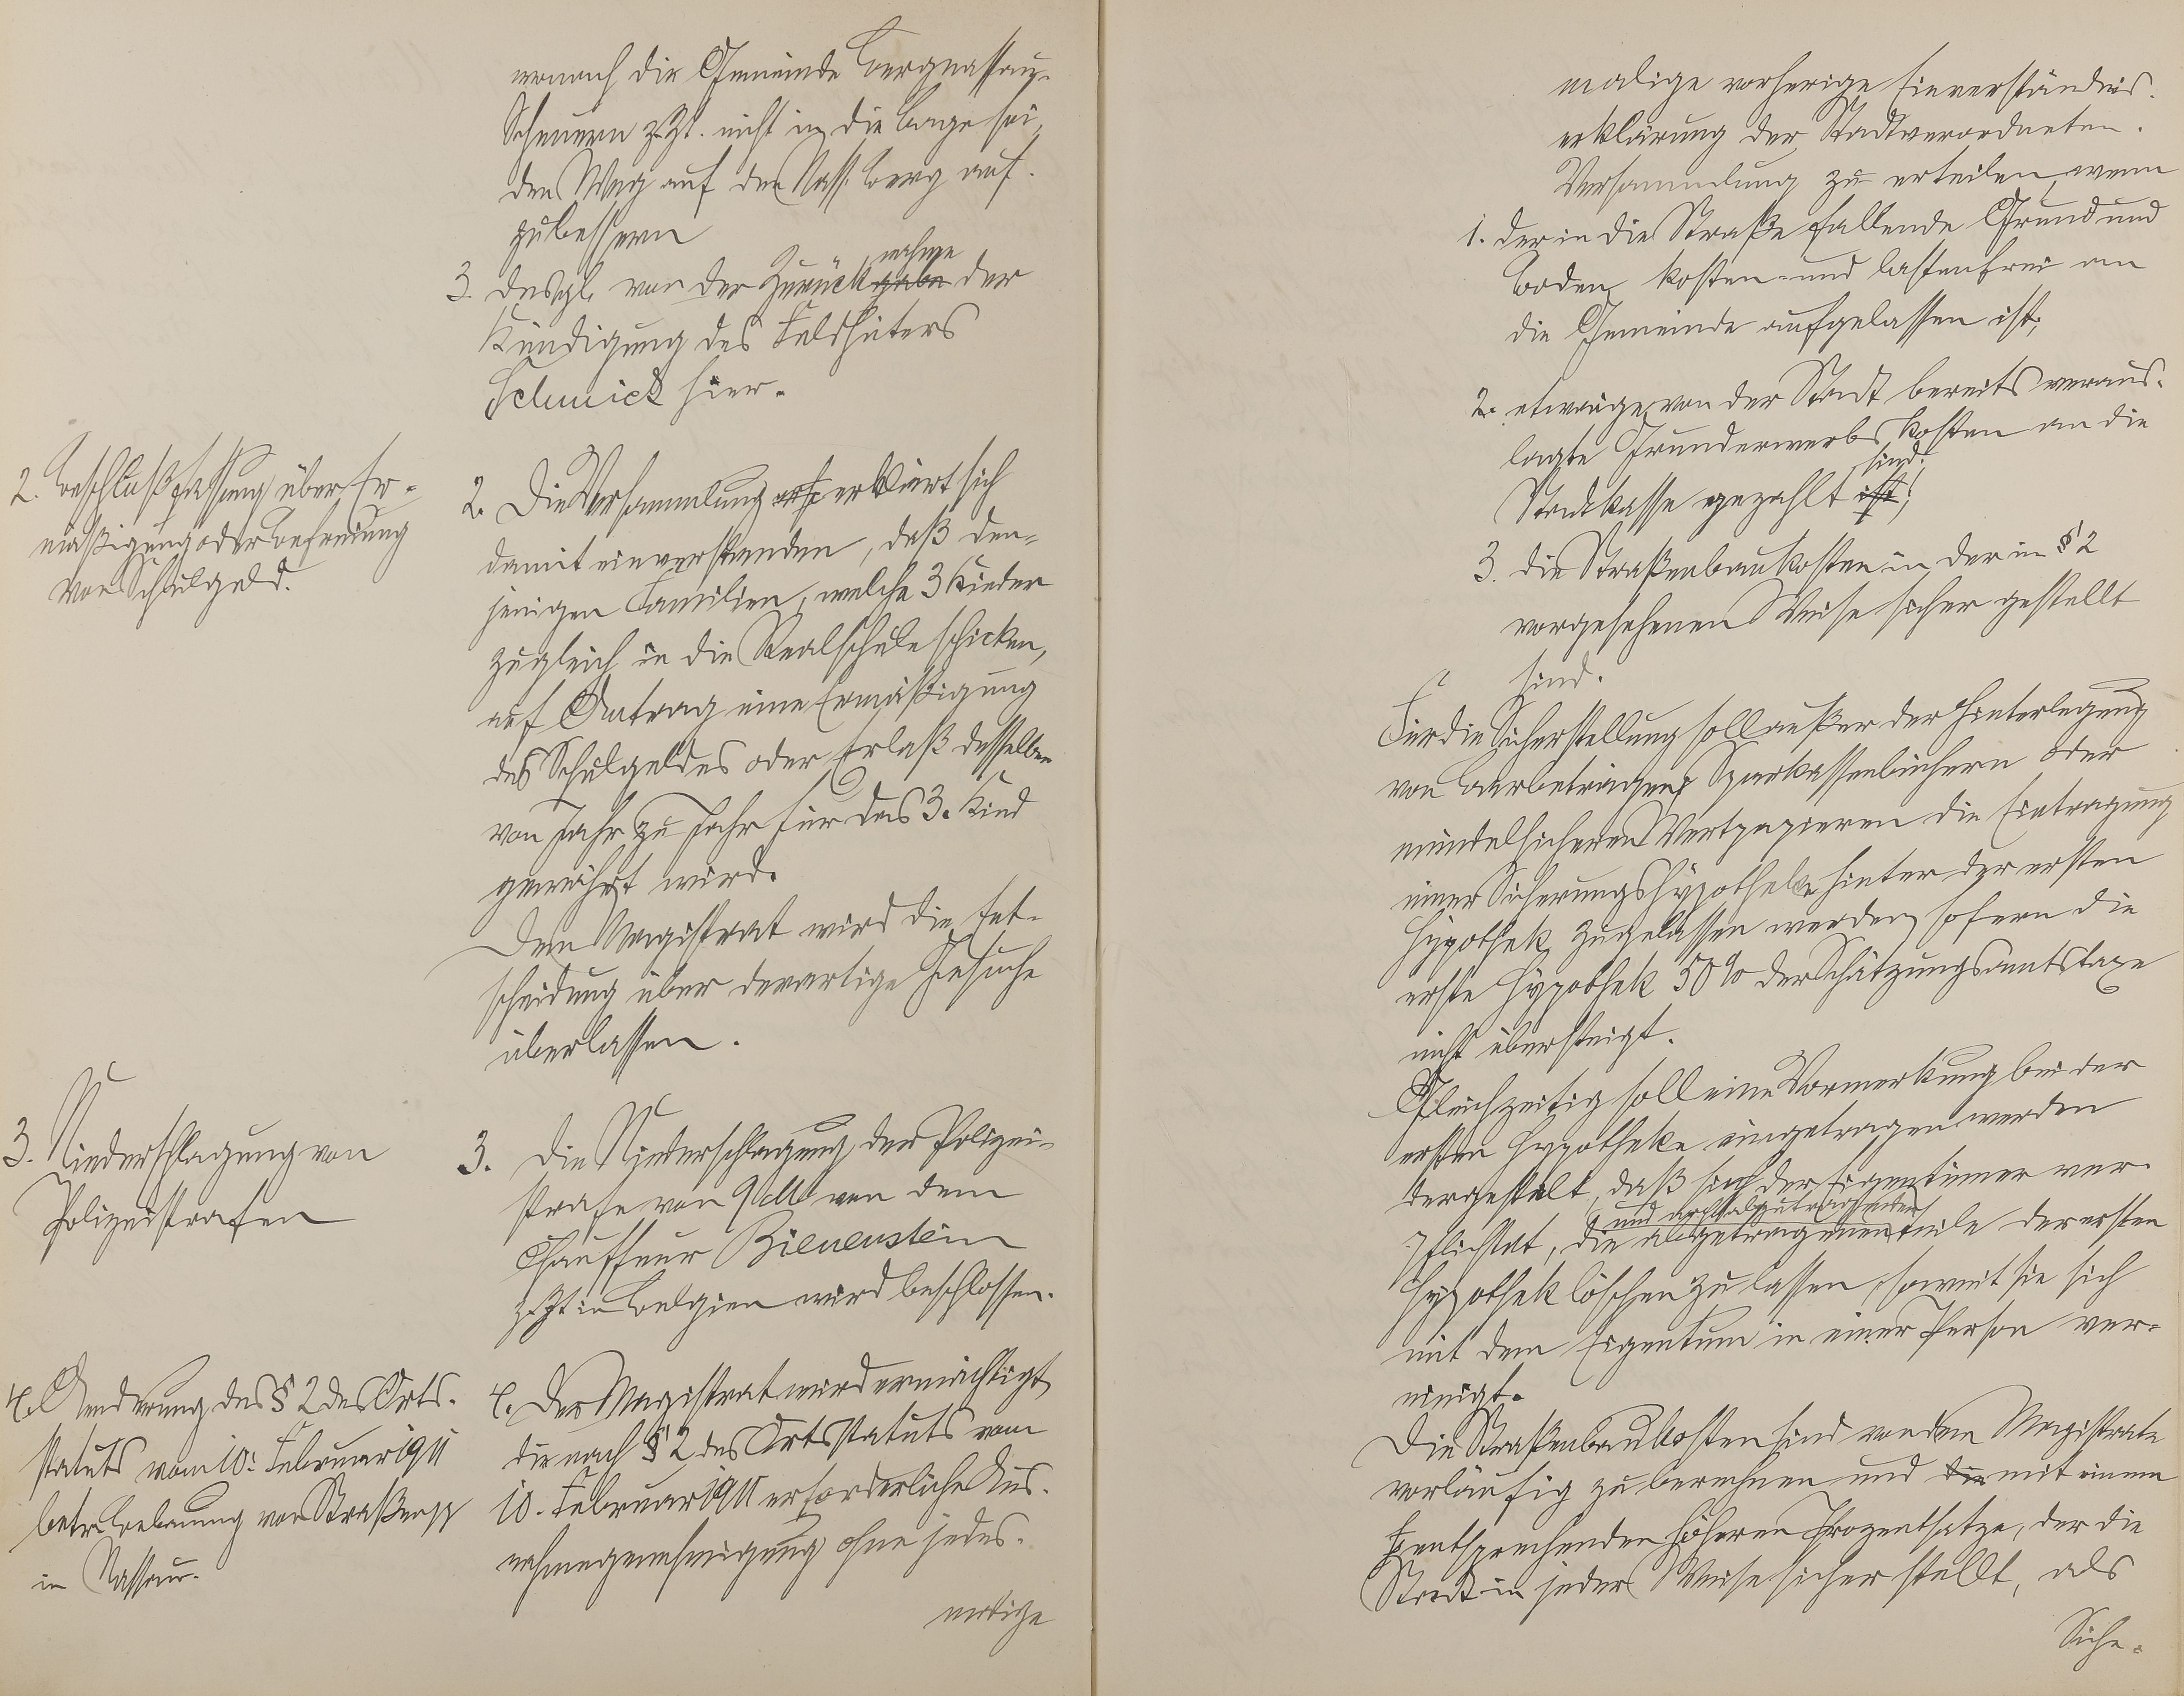 wonach die Gemeinde Bergnassau-
Scheuern z. Zt. nicht in die Lage sei,
den Weg auf den Nass. Berg auf-
zubessern
3. desgl. von der Zurückgabe nahme der
Kündigung des Feldhüters
Schmick hier.
2. Beschlußfassung über Er-
mäßigung oder Befreiung
von Schulgeld.
2. Die Versammlung erklärt sich
damit einverstanden, daß den-
jenigen Familien, welche 3 Kinder
zugleich in die Realschule schicken,
auf Antrag eine Ermäßigung
des Schulgeldes oder Erlaß desselben
von Jahr zu Jahr für das 3. Kind
gewährt wird.
Dem Magistrat wird die Ent-
scheidung über derartige Gesuche
überlassen.
3. Niederschlagung von
Polizeistrafen
3. Die Niederschlagung der Polizei-
strafe von 9 M von dem
Chauffeur Bienenstein
z. Zt in Belgien wird beschlossen.
4. Aenderung des § 2 des Orts-
statuts vom 10. Februar 1911
betr. Bebauung von Straßen pp
in Nassau.
4. Der Magistrat wird ermächtigt,
die nach § 2 des Ortsstatuts vom
10. Februar 1911 erforderliche Aus-
nahmegenehmigung ohne jedes-
malige
malige vorherige Einverständnis-
erklärung der Stadtverordneten-
Versammlung zu erteilen, wenn
1. der in die Straße fallende Grund und
Boden kosten- und lastenfrei an
die Gemeinde aufgelassen ist,
2. etwaige von der Stadt bereits veraus-
lagte Grunderwerbskosten an die
Stadtkasse gezahlt ist sind;
3. die Straßenbaukosten in der im § 2
vorgesehenen Weise sicher gestellt
sind.
Für die Sicherstellung soll außer der Hinterlegung
von Barbeträgen, Sparkassenbüchern oder
mündelsicheren Wertpapieren die Eintragung
einer Sicherungshypotheke hinter der ersten
Hypothek zugelassen werden, sofern die
erste Hypothek 50% der Schätzungsamtstaxe
nicht übersteigt.
Gleichzeitig soll eine Vormerkung bei der
ersten Hypotheke eingetragen werden
dergestalt, daß sich der Eigentümer ver-
pflichtet, die abgetragenen und abzutragenden Teile der ersten
Hypothek löschen zu lassen, soweit sie sich
mit dem Eigentum in einer Person ver-
einigt.
Die Straßenbaukosten sind von dem Magistrate
vorläufig zu berechnen und die mit einem
entsprechenden höheren Prozentsatze, der die
Stadt in jeder Weise sicher stellt, als
Siche-